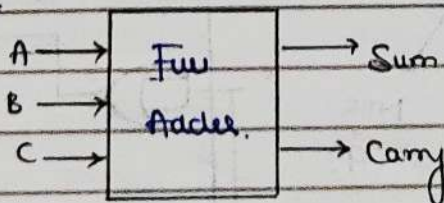 A
B
C
Full
Adder.
Sum
Carry